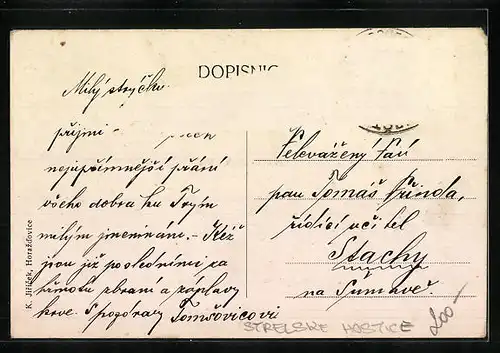 DOPISNIC
Milý strýčku.
přijmi –
nejupřímnější přání
všeho dobra ku Tvým
milým jmeninám. – Kéž
jsou již posledními za
hluku zbraní a záplavy
krve. S pozdravy Tomšovicovi
Velevážený Pán
pan Tomáš
řídící učitel
Stachy
na Šumavě.
K. Jiříček, Horažďovice
STRELSKE HOSTICE
200-